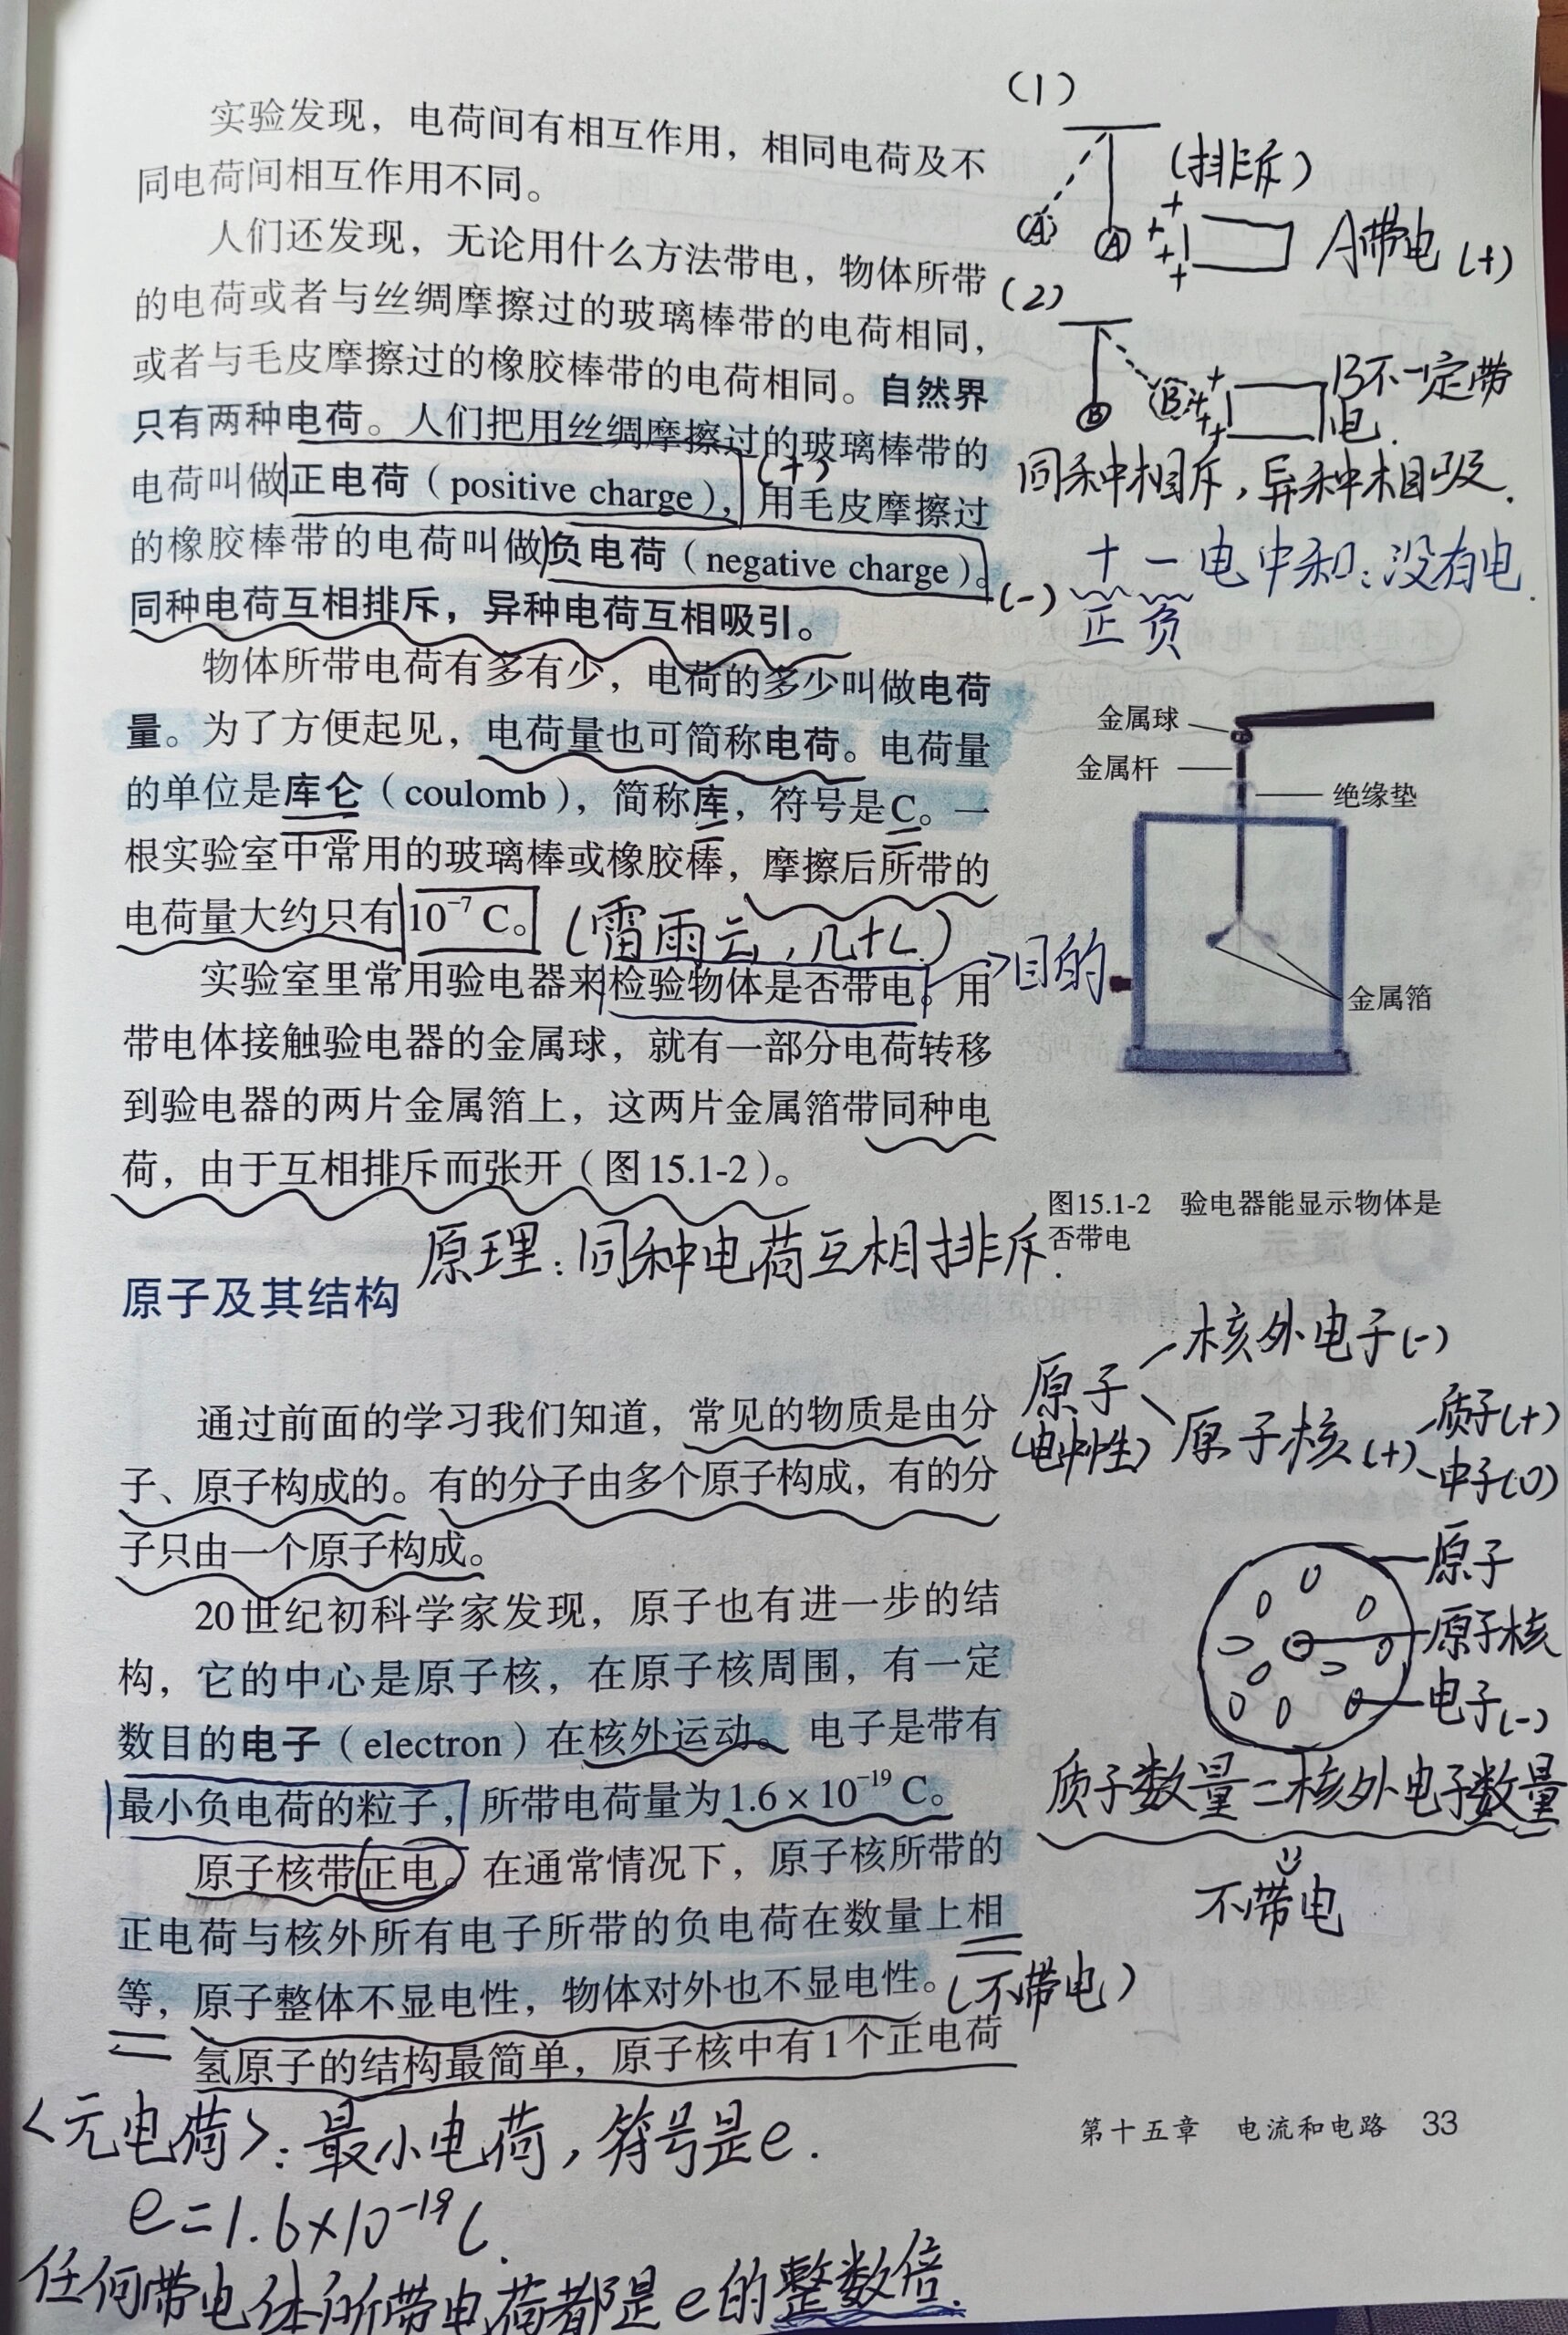 实验发现，电荷间有相互作用，相同电荷及不
同电荷间相互作用不同。
人们还发现，无论用什么方法带电，物体所带
的电荷或者与丝绸摩擦过的玻璃棒带的电荷相同，
或者与毛皮摩擦过的橡胶棒带的电荷相同。自然界
只有两种电荷。人们把用丝绸摩擦过的玻璃棒带的
电荷叫做正电荷（positive charge），用毛皮摩擦过
(+)
的橡胶棒带的电荷叫做负电荷（negative charge）。
(-)
同种电荷互相排斥，异种电荷互相吸引。
物体所带电荷有多有少，电荷的多少叫做电荷
量。为了方便起见，电荷量也可简称电荷。电荷量
的单位是库仑（coulomb），简称库，符号是C。一
根实验室中常用的玻璃棒或橡胶棒，摩擦后所带的
电荷量大约只有10⁻⁷ C。
(雷雨云，几十C)
实验室里常用验电器来检验物体是否带电。用
目的
带电体接触验电器的金属球，就有一部分电荷转移
到验电器的两片金属箔上，这两片金属箔带同种电
荷，由于互相排斥而张开（图15.1-2）。
原理：同种电荷互相排斥.
(1)
(排斥)
A
A
+
+
+
+
A带电(+)
(2)
B
B
+
+
B不一定带
电.
同种相斥，异种相吸.
+ - 电中和：没有电.
正 负
金属球
金属杆
绝缘垫
金属箔
图15.1-2 验电器能显示物体是
否带电
原子及其结构
通过前面的学习我们知道，常见的物质是由分
子、原子构成的。有的分子由多个原子构成，有的分
子只由一个原子构成。
20世纪初科学家发现，原子也有进一步的结
构，它的中心是原子核，在原子核周围，有一定
数目的电子（electron）在核外运动。电子是带有
最小负电荷的粒子，所带电荷量为1.6×10⁻¹⁹ C。
原子核带正电。在通常情况下，原子核所带的
正电荷与核外所有电子所带的负电荷在数量上相
等，原子整体不显电性，物体对外也不显电性。
(不带电)
氢原子的结构最简单，原子核中有1个正电荷
原子
(电中性)
核外电子(-)
原子核(+)
质子(+)
中子(0)
原子
原子核
电子(-)
质子数量=核外电子数量
不带电
第十五章 电流和电路 33
<元电荷>：最小电荷，符号是e.
e=1.6×10⁻¹⁹C.
任何带电体所带电荷都是e的整数倍.